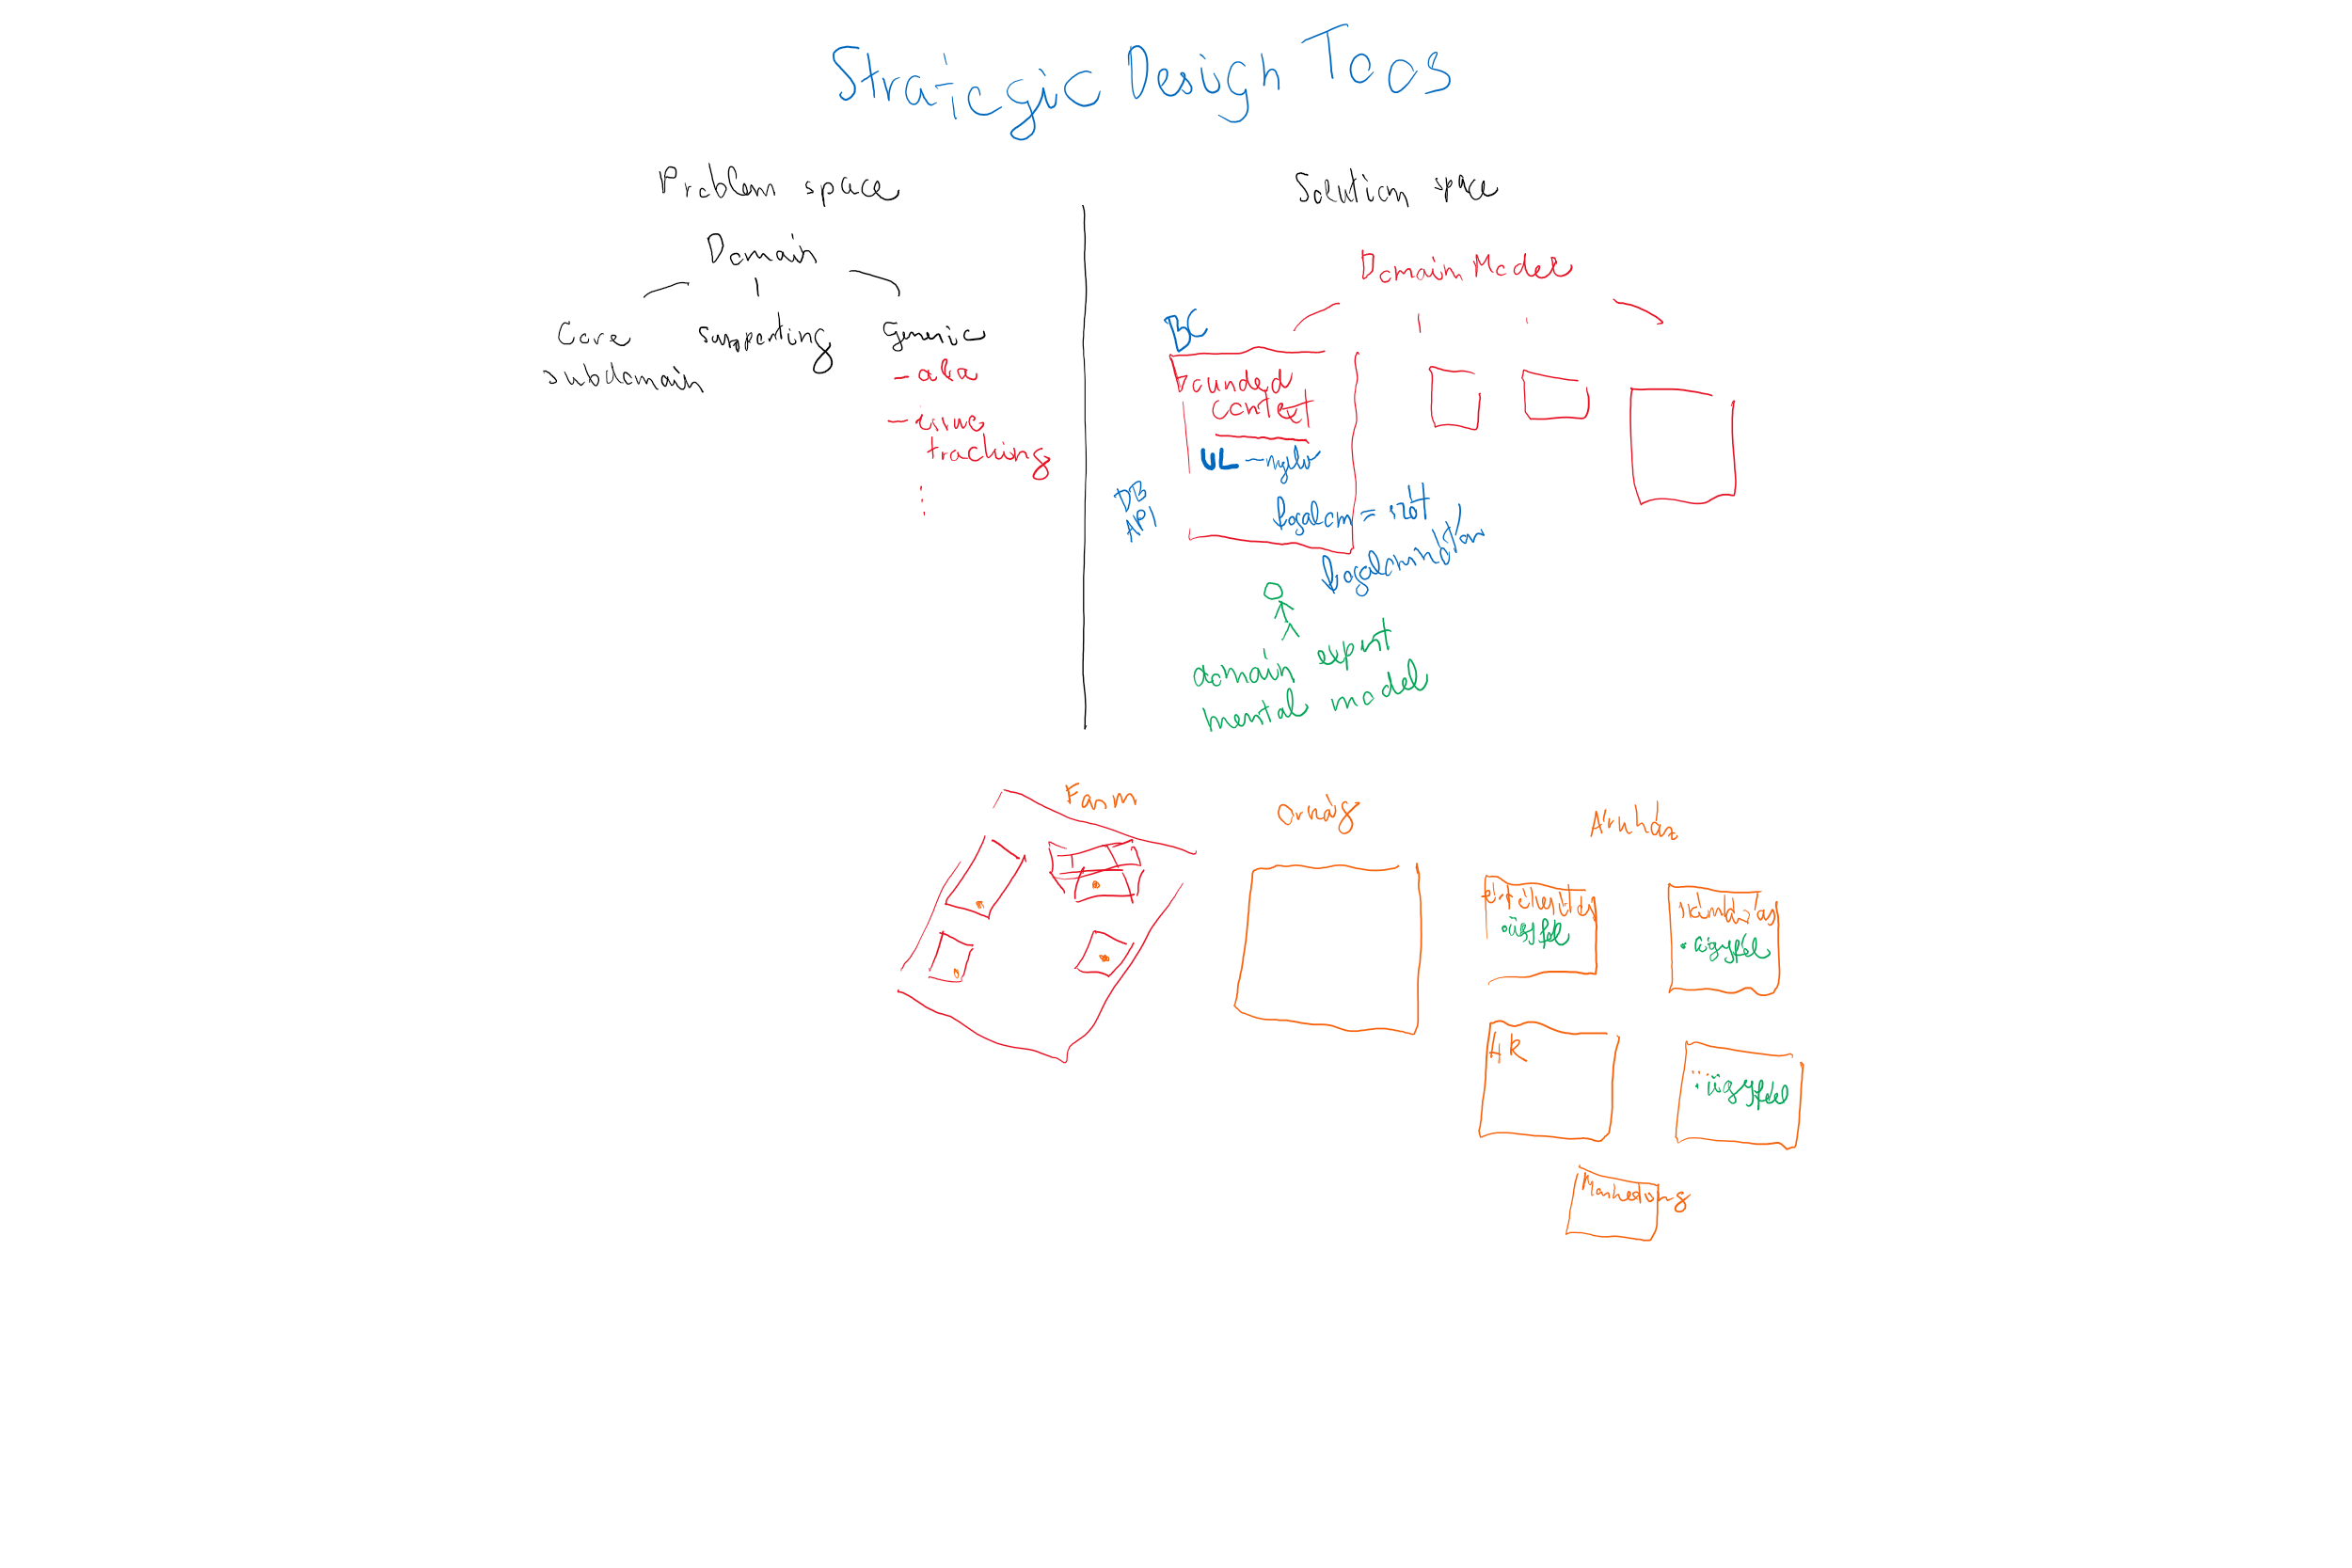 Strategic Design Tools
Problem space
Domain
Core
subdomain
supporting
generic
- issue
tracking
Solution space
Domain Model
BC
bounded
context
UL - nyelv
DB
API
fogalom = szót
domain expert
mental model
Farm
Ország
Áruház
értékesítés
ügyfél
számlázás
ügyfél
HR
ügyfél
Marketing